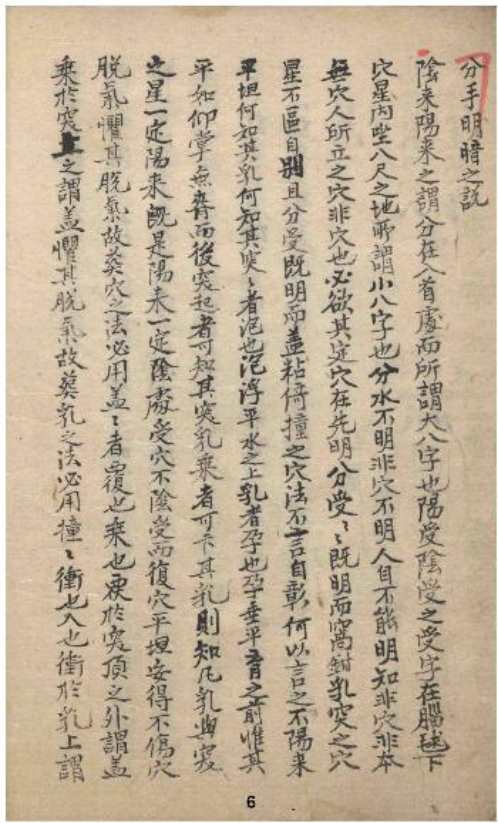 分手明暗之説
陰来陽来之謂分在八首處而所謂大八字也陽受陰受之受字在腦毬下
穴星內坐八尺之地所謂小八字也分水不明非穴不明人自不能明知非穴非本
無穴人所立之穴非穴也必欲其定穴在先明分受〻既明而窩鉗乳突之穴
星不區自別且分受既明而蓋粘倚撞之穴法不言自彰何以言之不陽来
平坦何知其乳何知其突〻者泡也泡浮平水之上乳者孕也孕垂平育之前惟其
平如仰掌無脊而後突起者可知其突乳乘者可卞其乳則知凡乳與突
之星一定陽来既是陽来一定陰處受穴不陰受而復穴平坦安得不傷穴
脱氣懼其脱氣故葬穴之法必用蓋〻者覆也乘也覆於突頂之外謂蓋
乘於突之謂盖懼其脱氣故葬乳之法必用撞〻衝也入也衝於乳上謂
6